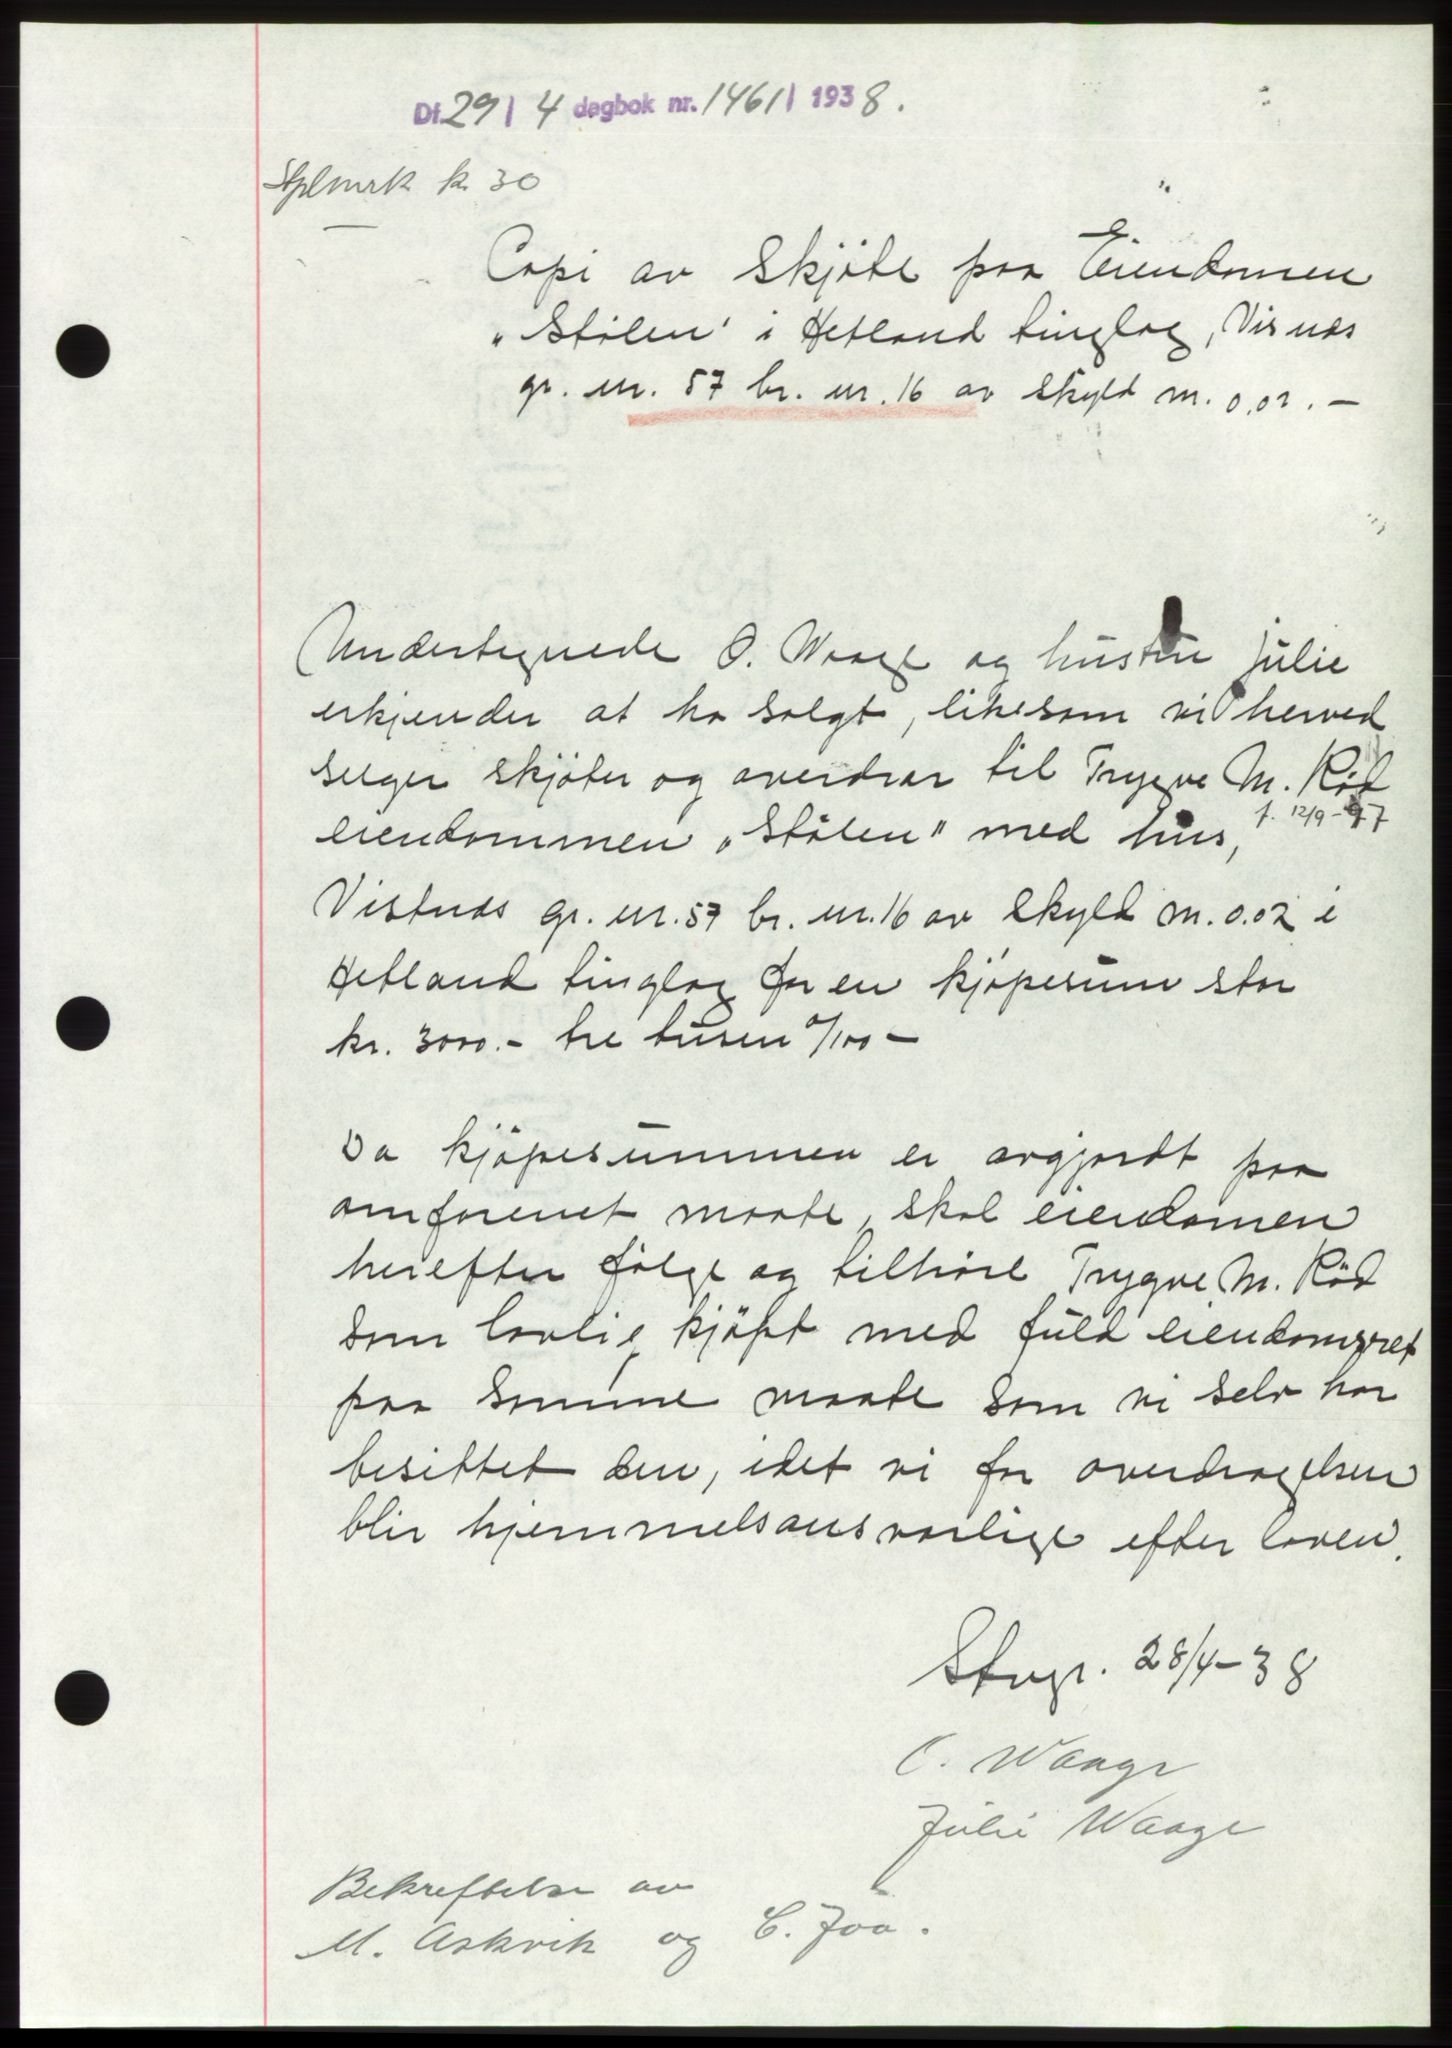 Df. 29 / 4 dagbok nr. 1461 / 1938.
Stplmrk kr 30
Copi av Skjöte paa Eiendomen
„Stölen" i Hetland tinglag, Visnæs
gr. nr. 57 br. nr. 16 av skyld m. 0,02. –
Undertegnede O. Waage og hustru Julie
erkjender at ha solgt, likesom vi herved
selger skjöter og overdrar til Trygve M. Röd
f. 12/9-97
eiendommen „Stölen" med hus,
Vistnæs gr. nr. 57 br. nr. 16 av Skyld m. 0.02 i
Hetland tinglag for en kjöpesum stor
kr. 3000.- tre tusen 0/100 –
Da kjöpesummen er avgjordt paa
omforenet maate, skal eiendomen
herefter følge og tilhöre Trygve M. Röd
som lovlig kjöpt med fuld eiendomsret
paa samme maate som vi selv har
besittet den, idet vi for overdragelsen
blir hjemmelsansvarlige efter loven.
Stvgr. 28/4-38
O. Waage
Julie Waage
Bekreftelse av
M. Askvik og C. Joa.